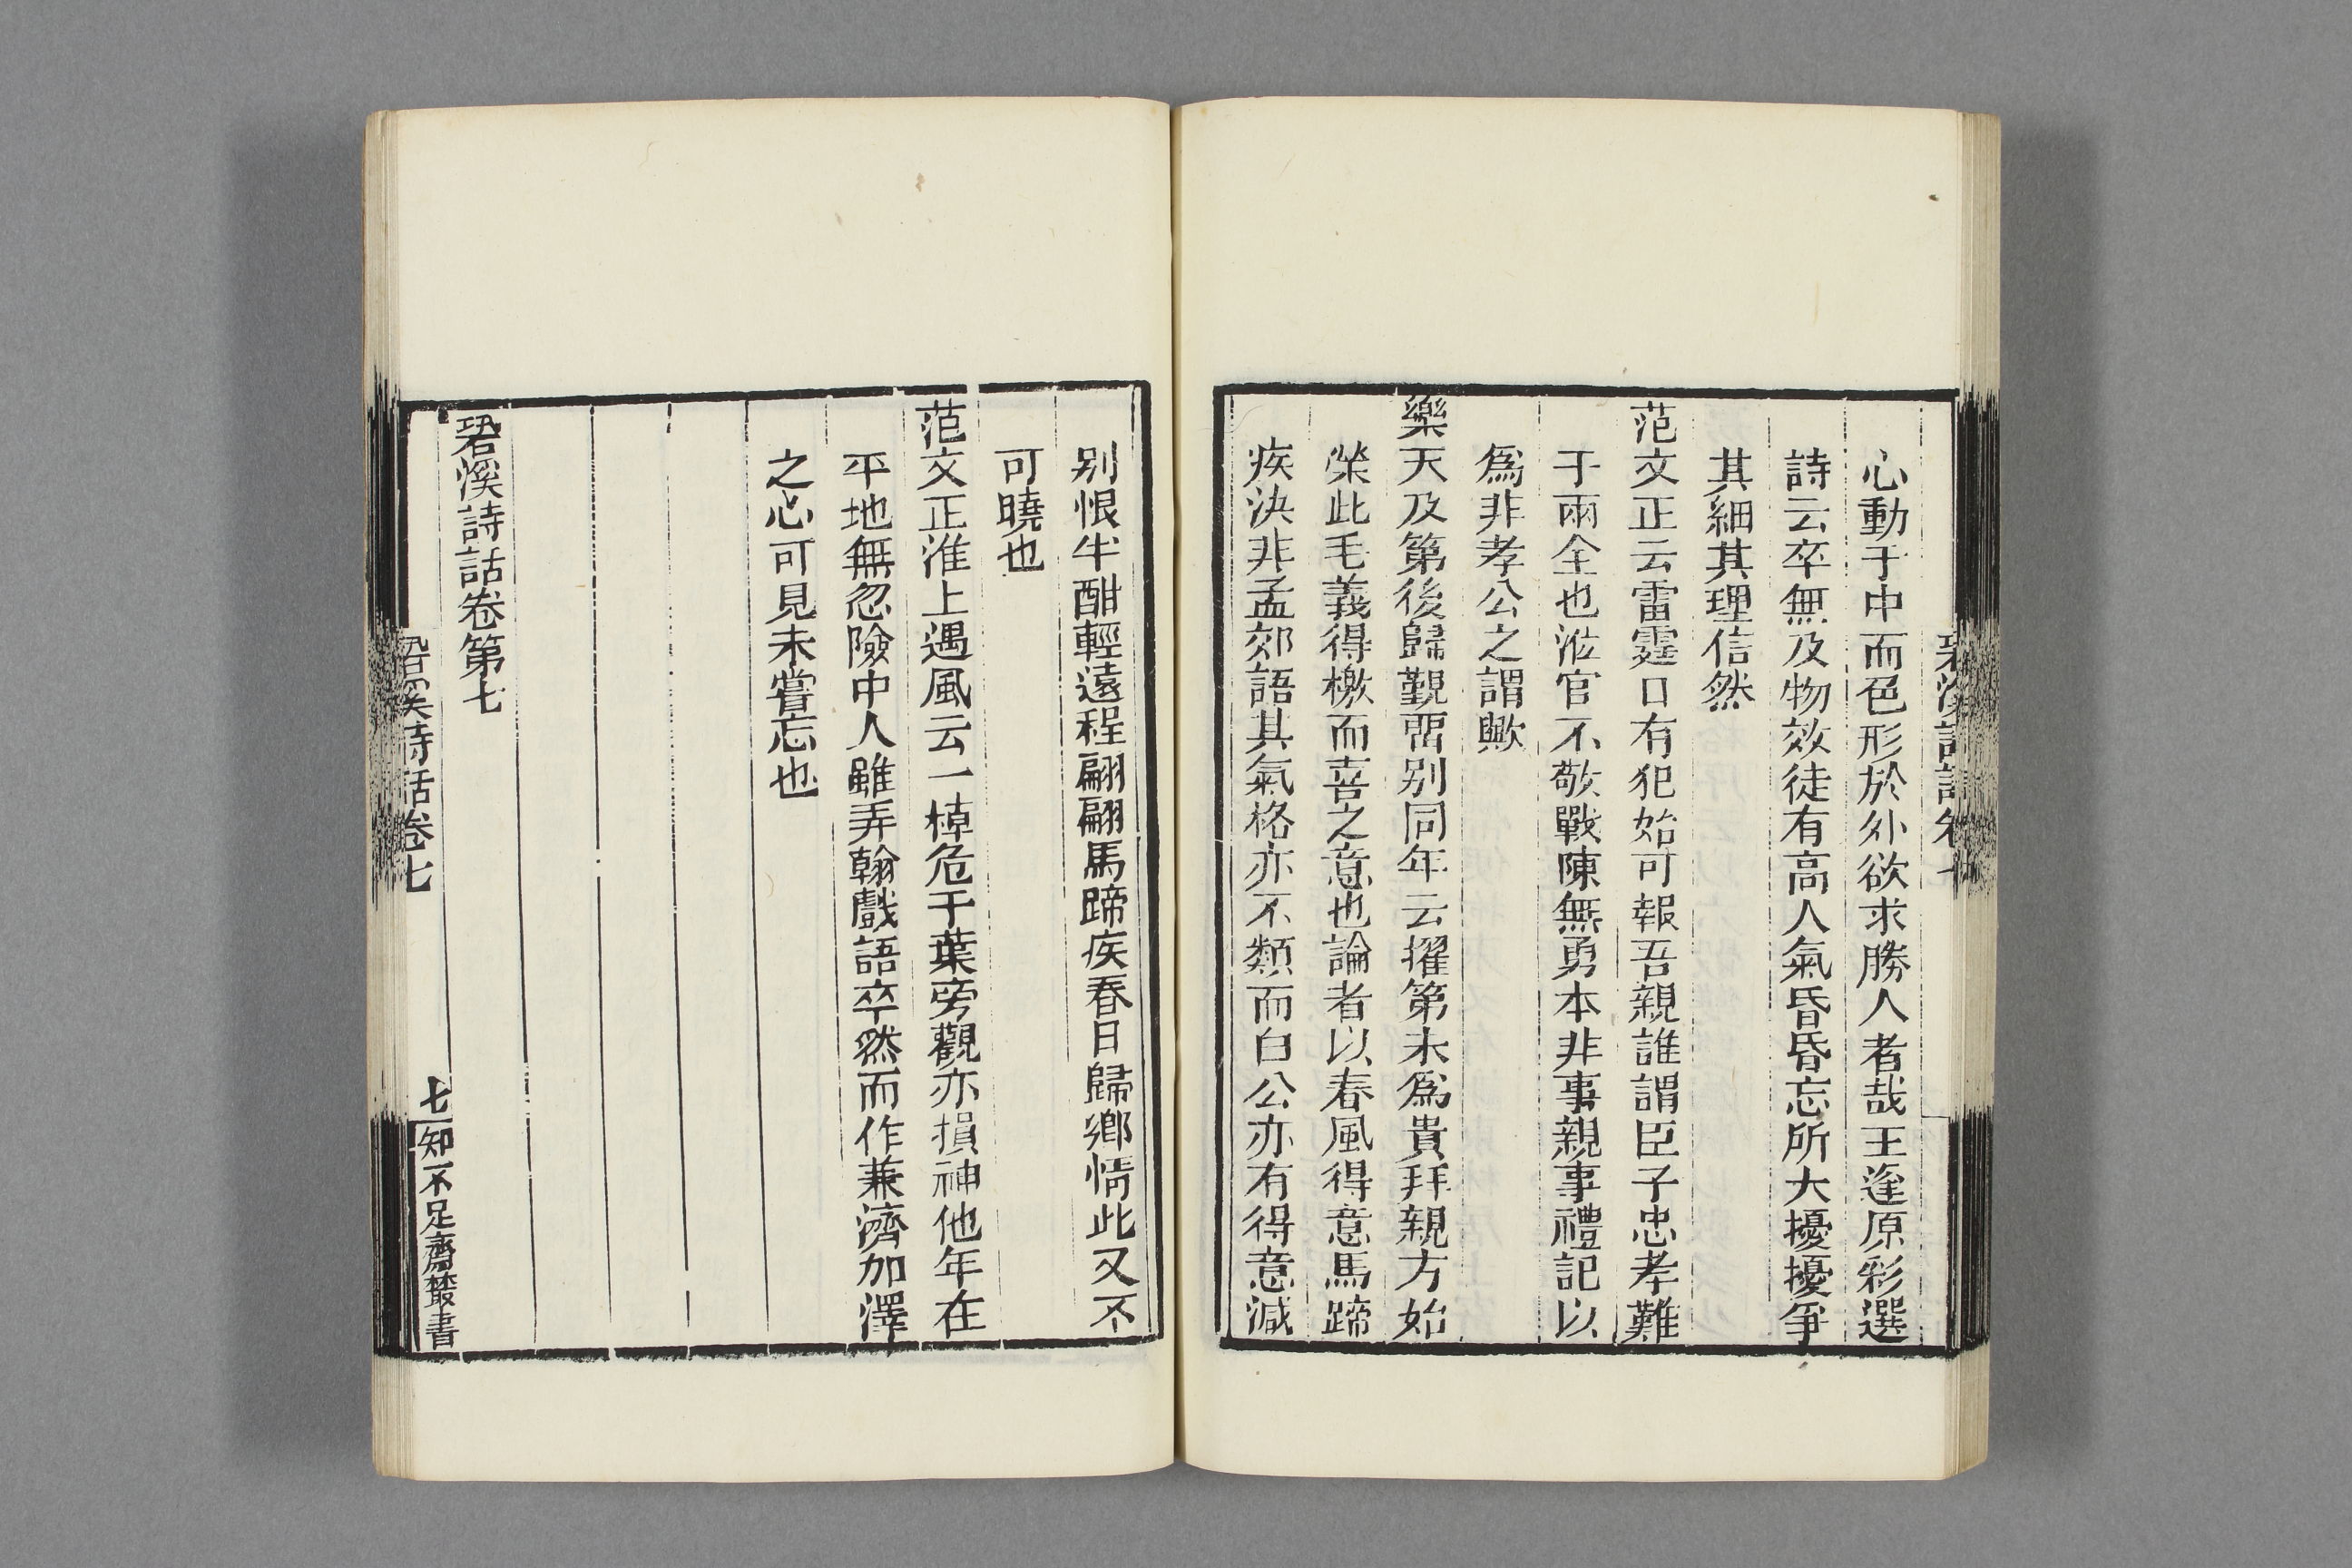 心動于中而色形於外欲求勝人者哉王逢原彩選
詩云卒無及物效徒有高人氣昏昏忘所大擾擾爭
其細其理信然
范文正云雷霆日有犯始可報吾親誰謂臣子忠孝難
于兩全也涖官不敬戰陳無勇本非事親事禮記以
爲非孝公之謂歟
樂天及第後歸覲畱别同年云擢第未爲貴拜親方始
榮此毛義得檄而喜之意也論者以春風得意馬蹄
疾決非孟郊語其氣格亦不類而白公亦有得意減
别恨半酣輕遠程翩翩馬蹄疾春日歸鄉情此又不
可曉也
范文正淮上遇風云一棹危于葉旁觀亦損神他年在
平地無忽險中人雖弄翰戲語卒然而作兼濟加澤
之心可見未嘗忘也
䂬溪詩話卷第七
䂬溪詩話卷七
七
知不足齋叢書